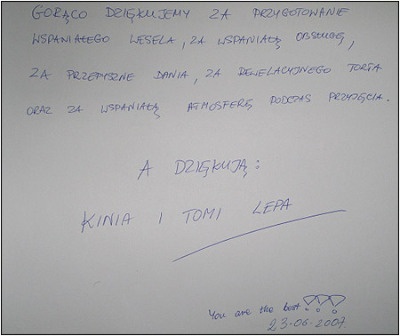 GORĄCO DZIĘKUJEMY ZA PRZYGOTOWANIE
WSPANIAŁEGO WESELA, ZA WSPANIAŁĄ OBSŁUGĘ,
ZA PRZEPYSZNE DANIA, ZA REWELACYJNEGO TORTA
ORAZ ZA WSPANIAŁĄ ATMOSFERĘ PODCZAS PRZYJĘCIA.
A DZIĘKUJĄ:
KINIA I TOMI LEPA
You are the best!!!
23.06.2007